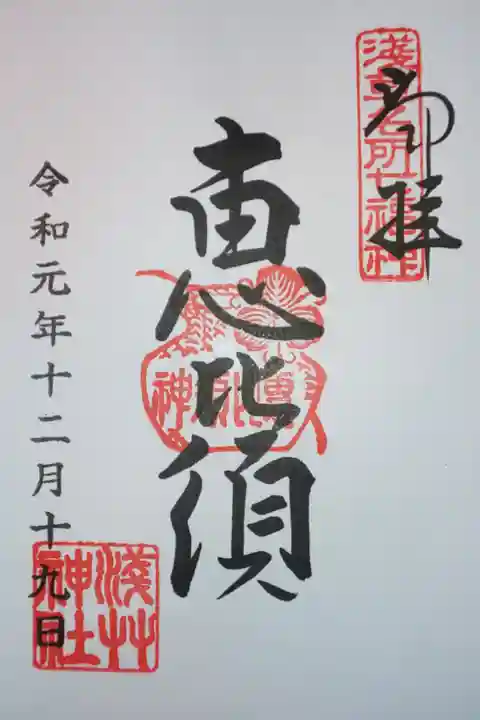 淺草名所七福神
奉拝
恵比須
恵比須神
令和元年十二月十九日
淺草神社